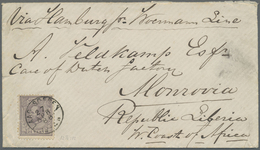 Via Hamburg pr Woermann Line
A. Feldkamp Esqr
Care of Dutch Factory
Monrovia
Republic Liberia
W. Coast of Africa